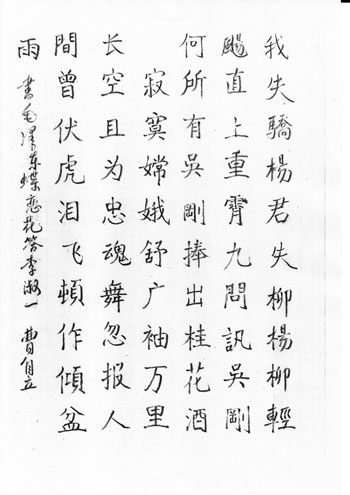 我失驕楊君失柳楊柳輕
颺直上重霄九問訊吳剛
何所有吳剛捧出桂花酒
寂寞嫦娥舒广袖万里
长空且为忠魂舞忽报人
間曾伏虎泪飞頓作傾盆
雨 書毛澤东蝶恋花答李淑一